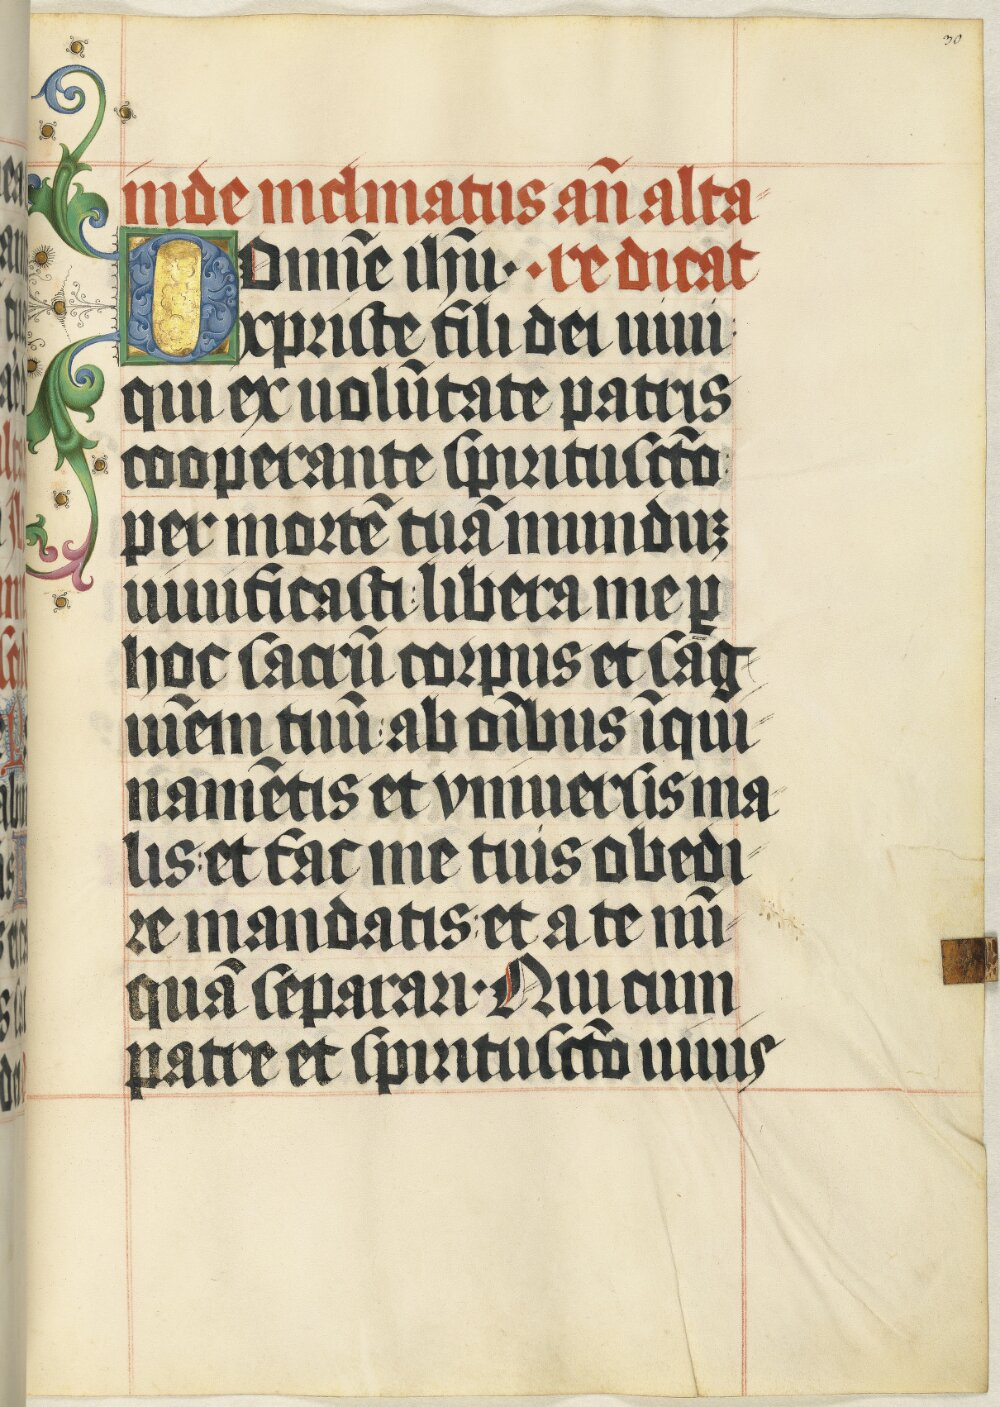 30
inde inclinatus an̄ alta
Domīe ihū · · re dicat
xpriste fili dei uiui:
qui ex uolūtate patris
cooperante spirituscto:
per mortē tuā munduz
uiuificasti: libera me ꝑ
hoc sacrū corpus et sāg
uīem tuū: ab oībus īqui
namētis et vniuersis ma
lis: et fac me tuis obedi
re mandatis: et a te nū
quā separari · Qui cum
patre et spiritusctō uiuis